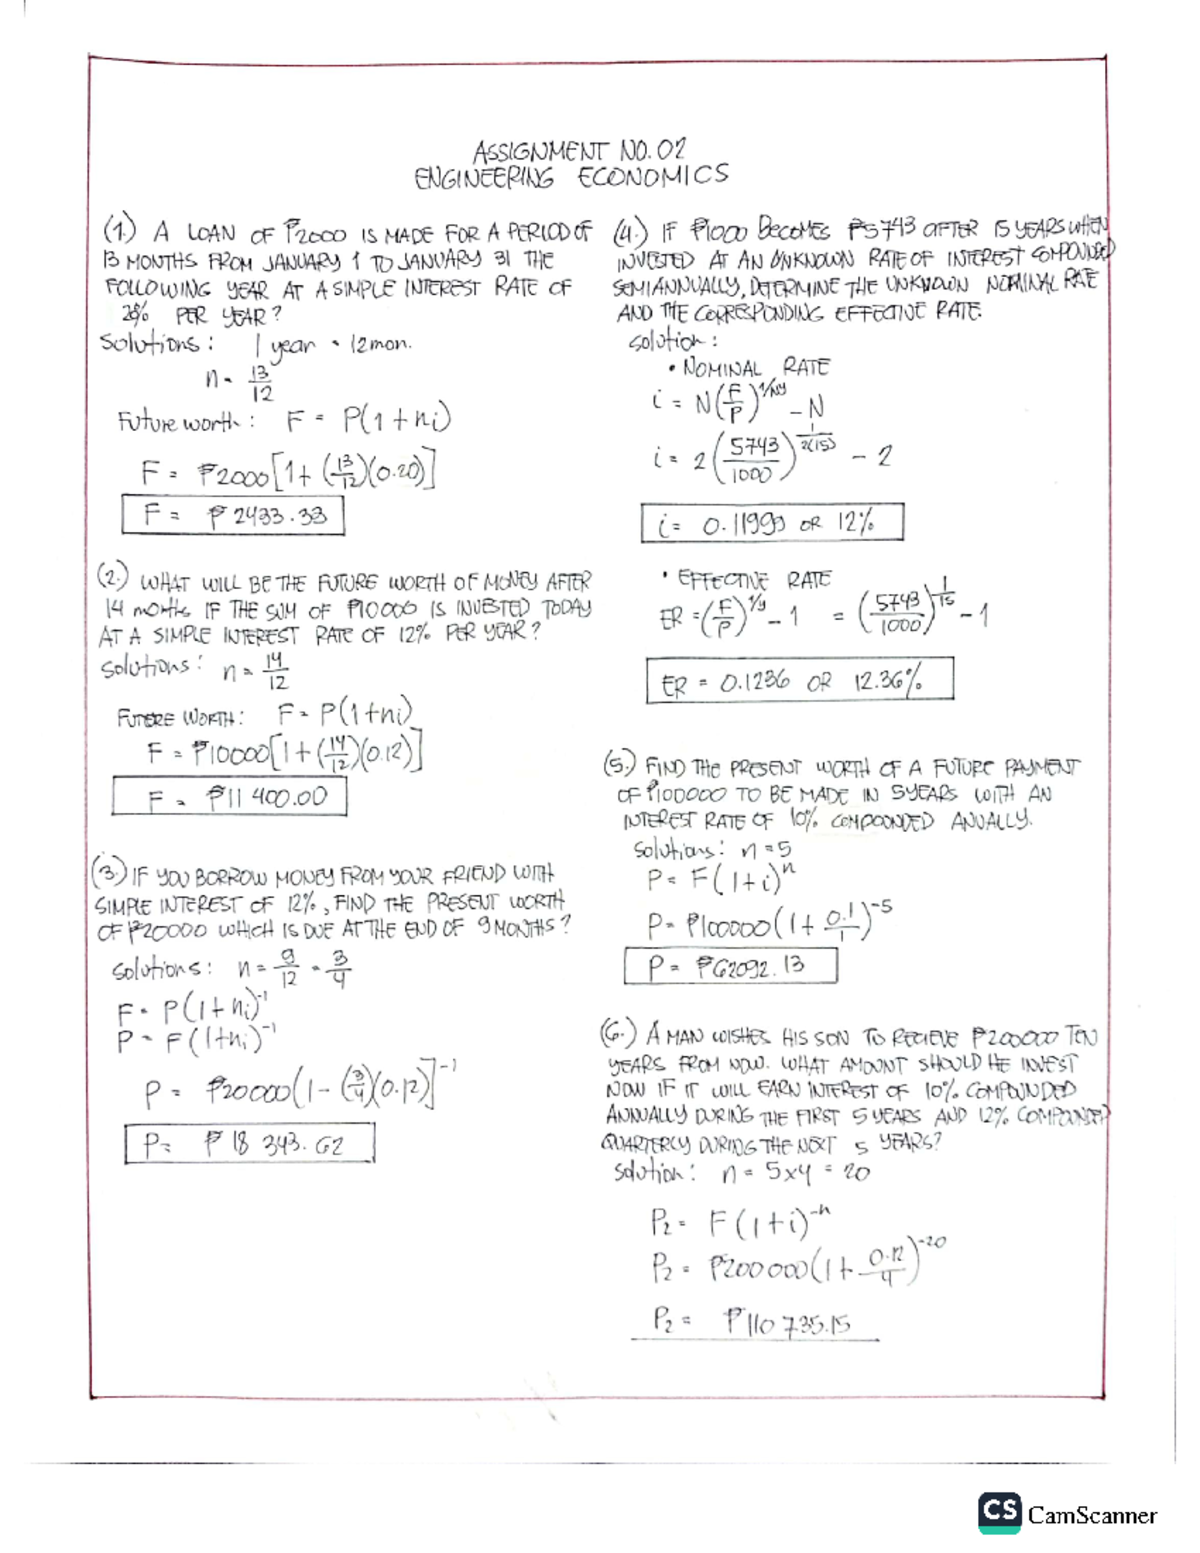 ASSIGNMENT NO. 02
ENGINEERING ECONOMICS
(1.) A LOAN OF ₱2000 IS MADE FOR A PERIOD OF
13 MONTHS FROM JANUARY 1 TO JANUARY 31 THE
FOLLOWING YEAR AT A SIMPLE INTEREST RATE OF
20% PER YEAR?
Solutions: 1 year = 12 mon.
n = 13/12
Future worth: F = P(1 + ni)
F = ₱2000[1 + (13/12)(0.20)]
F = ₱ 2433.33
(2.) WHAT WILL BE THE FUTURE WORTH OF MONEY AFTER
14 months IF THE SUM OF ₱10000 IS INVESTED TODAY
AT A SIMPLE INTEREST RATE OF 12% PER YEAR?
Solutions: n = 14/12
FUTURE WORTH: F = P(1+ni)
F = ₱10000[1 + (14/12)(0.12)]
F = ₱11 400.00
(3.) IF YOU BORROW MONEY FROM YOUR FRIEND WITH
SIMPLE INTEREST OF 12%, FIND THE PRESENT WORTH
OF ₱20000 WHICH IS DUE AT THE END OF 9 MONTHS?
Solutions: n = 9/12 = 3/4
F = P(1+ni)^-1
P = F(1+ni)^-1
P = ₱20000(1 - (3/4)(0.12)]^-1
P = ₱ 18 343.62
(4.) IF ₱1000 BECOMES ₱5743 AFTER 15 YEARS WHEN
INVESTED AT AN UNKNOWN RATE OF INTEREST COMPOUNDED
SEMIANNUALLY, DETERMINE THE UNKNOWN NOMINAL RATE
AND THE CORRESPONDING EFFECTIVE RATE.
solution:
• NOMINAL RATE
i = N(F/P)^1/Ny - N
i = 2(5743/1000)^1/2(15) - 2
i = 0.11999 OR 12%
• EFFECTIVE RATE
ER = (F/P)^1/y - 1 = (5743/1000)^1/15 - 1
ER = 0.1236 OR 12.36%
(5.) FIND THE PRESENT WORTH OF A FUTURE PAYMENT
OF ₱100000 TO BE MADE IN 5 YEARS WITH AN
INTEREST RATE OF 10% COMPOUNDED ANUALLY.
Solutions: n = 5
P = F(1+i)^n
P = ₱100000(1 + 0.1/1)^-5
P = ₱62092.13
(6.) A MAN WISHES HIS SON TO RECIEVE ₱200000 TEN
YEARS FROM NOW. WHAT AMOUNT SHOULD HE INVEST
NOW IF IT WILL EARN INTEREST OF 10% COMPOUNDED
ANNUALLY DURING THE FIRST 5 YEARS AND 12% COMPOUNDED
QUARTERLY DURING THE NEXT 5 YEARS?
solution: n = 5x4 = 20
P2 = F(1+i)^-n
P2 = ₱200000(1 + 0.12/4)^-20
P2 = ₱110 735.15
CS CamScanner